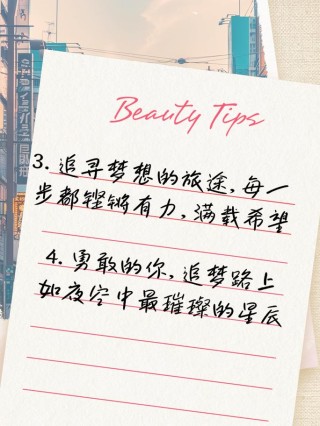 Beauty Tips
3. 追寻梦想的旅途, 每一
步都铿锵有力, 满载希望
4. 勇敢的你, 追梦路上
如夜空中最璀璨的星辰